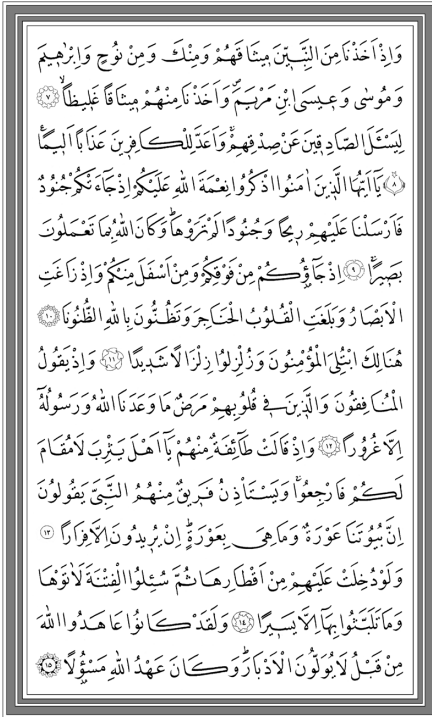 وَاِذْ اَخَذْنَا مِنَ النَّبِيّٖنَ مِيثَاقَهُمْ وَمِنْكَ وَمِنْ نُوحٍ وَاِبْرٰهِيمَ
وَمُوسٰى وَعِيسَى ابْنِ مَرْيَمَۖ وَاَخَذْنَا مِنْهُمْ مِيثَاقًا غَلِيظًاۙ ﴿٧﴾
لِيَسْـَٔلَ الصَّادِقِينَ عَنْ صِدْقِهِمْۚ وَاَعَدَّ لِلْكَافِرِينَ عَذَابًا اَلِيمًا۟
﴿٨﴾ يَٓا اَيُّهَا الَّذِينَ اٰمَنُوا اذْكُرُوا نِعْمَةَ اللّٰهِ عَلَيْكُمْ اِذْ جَٓاءَتْكُمْ جُنُودٌ
فَاَرْسَلْنَا عَلَيْهِمْ رِيحًا وَجُنُودًا لَمْ تَرَوْهَاۜ وَكَانَ اللّٰهُ بِمَا تَعْمَلُونَ
بَصِيرًاۚ ﴿٩﴾ اِذْ جَٓاؤُ۫كُمْ مِنْ فَوْقِكُمْ وَمِنْ اَسْفَلَ مِنْكُمْ وَاِذْ زَاغَتِ
الْاَبْصَارُ وَبَلَغَتِ الْقُلُوبُ الْحَنَاجِرَ وَتَظُنُّونَ بِاللّٰهِ الظُّنُونَا ﴿١٠﴾
هُنَالِكَ ابْتُلِيَ الْمُؤْمِنُونَ وَزُلْزِلُوا زِلْزَالًا شَدِيدًا ﴿١١﴾ وَاِذْ يَقُولُ
الْمُنَافِقُونَ وَالَّذِينَ فِي قُلُوبِهِمْ مَرَضٌ مَا وَعَدَنَا اللّٰهُ وَرَسُولُهُٓ
اِلَّا غُرُورًا ﴿١٢﴾ وَاِذْ قَالَتْ طَٓائِفَةٌ مِنْهُمْ يَٓا اَهْلَ يَثْرِبَ لَا مُقَامَ
لَكُمْ فَارْجِعُواۚ وَيَسْتَأْذِنُ فَرِيقٌ مِنْهُمُ النَّبِيَّ يَقُولُونَ
اِنَّ بُيُوتَنَا عَوْرَةٌ وَمَا هِيَ بِعَوْرَةٍۚ اِنْ يُرِيدُونَ اِلَّا فِرَارًا ﴿١٣﴾
وَلَوْ دُخِلَتْ عَلَيْهِمْ مِنْ اَقْطَارِهَا ثُمَّ سُئِلُوا الْفِتْنَةَ لَاٰتَوْهَا
وَمَا تَلَبَّثُوا بِهَٓا اِلَّا يَسِيرًا ﴿١٤﴾ وَلَقَدْ كَانُوا عَاهَدُوا اللّٰهَ
مِنْ قَبْلُ لَا يُوَلُّونَ الْاَدْبَارَۜ وَكَانَ عَهْدُ اللّٰهِ مَسْؤُ۫لًا ﴿١٥﴾